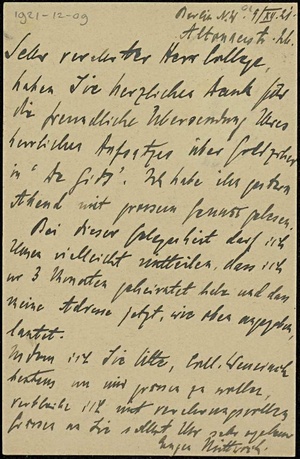 1921-12-09
Berlin N.W. 9/XII.21.
Altonaerstr.
Sehr verehrter Herr College,
haben Sie herzlichen Dank für
die freundliche Übersendung Ihres
herrlichen Aufsatzes über Goldziher
in "De Gids". Ich habe ihn gestern
Abend mit grossem Genuss gelesen.
Bei dieser Gelegenheit darf ich
Ihnen vielleicht mitteilen, dass ich
vor 3 Monaten geheiratet habe und dass
meine Adresse jetzt, wie oben angegeben,
lautet.
Indem ich Sie bitte, Coll. Wensinck
bestens von mir grüssen zu wollen,
verbleibe ich mit verehrungsvollen
Grüssen an Sie selbst Ihr sehr ergebener
Eugen Mittwoch.